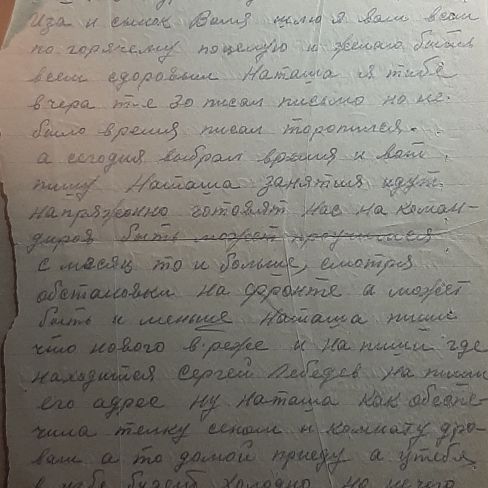 Иза и сынок Воля шлю я вам всем
по горячему поцелую и желаю быть
всем здоровым Наташа я тибе
вчера т-е 30 писал письмо но не-
было время писал торопился.
а сегодня выбрал время и вот
пишу Наташа занятия идут
напряжонно готовят нас на коман-
диров быть может проучимся
с месяц то и больше, смотря
обстановки на фронте а может
быть и меньше Наташа пиши
что нового в и напиши где
находится Сергей Лебедев напиши
его адрес ну Наташа как обеспе-
чила телку сеном и комнату дро-
вам а то домой приеду а у тебя
в избе будет холодно но нечего